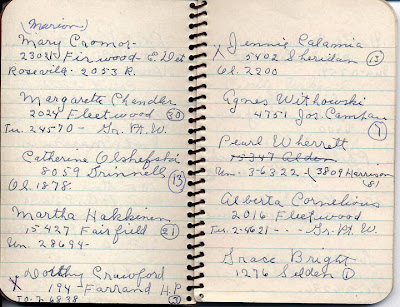 (Marion)
Mary Cromos-
23021 Firwood - E. Det
Rosevilg- 2053 R.
Margarette Chandler
2024 Fleetwood (30)
Tu. 24570 - Gr. Pt. W.
Catherine Olshefski
8059 Grinnell (13)
Ol. 1878.
Martha Hakkinen
15427 Fairfield (21)
Un. 28694-
X Dolthy Crawford
194- Farrand H.P
TO. 76838 (3)
Jennie Calamia
X 5402 Sheridan (13)
Ol. 2200
Agnes Withowski
4751 Jos. Campau
(7)
Pearl Wherrett
15347 Alden
Un. 3-6322 - (3809 Harrison
81
Alberta Cornelious
2016 Fleetwood
Tu. 2-4621 - - - Gr. Pt. W.
Grace Bright
1276 Selden (1)